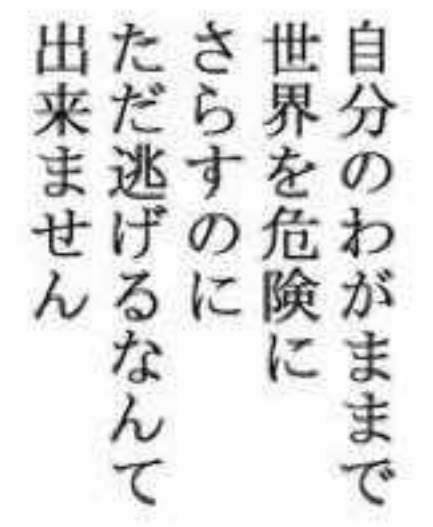 自分のわがままで
世界を危険に
さらすのに
ただ逃げるなんて
出来ません